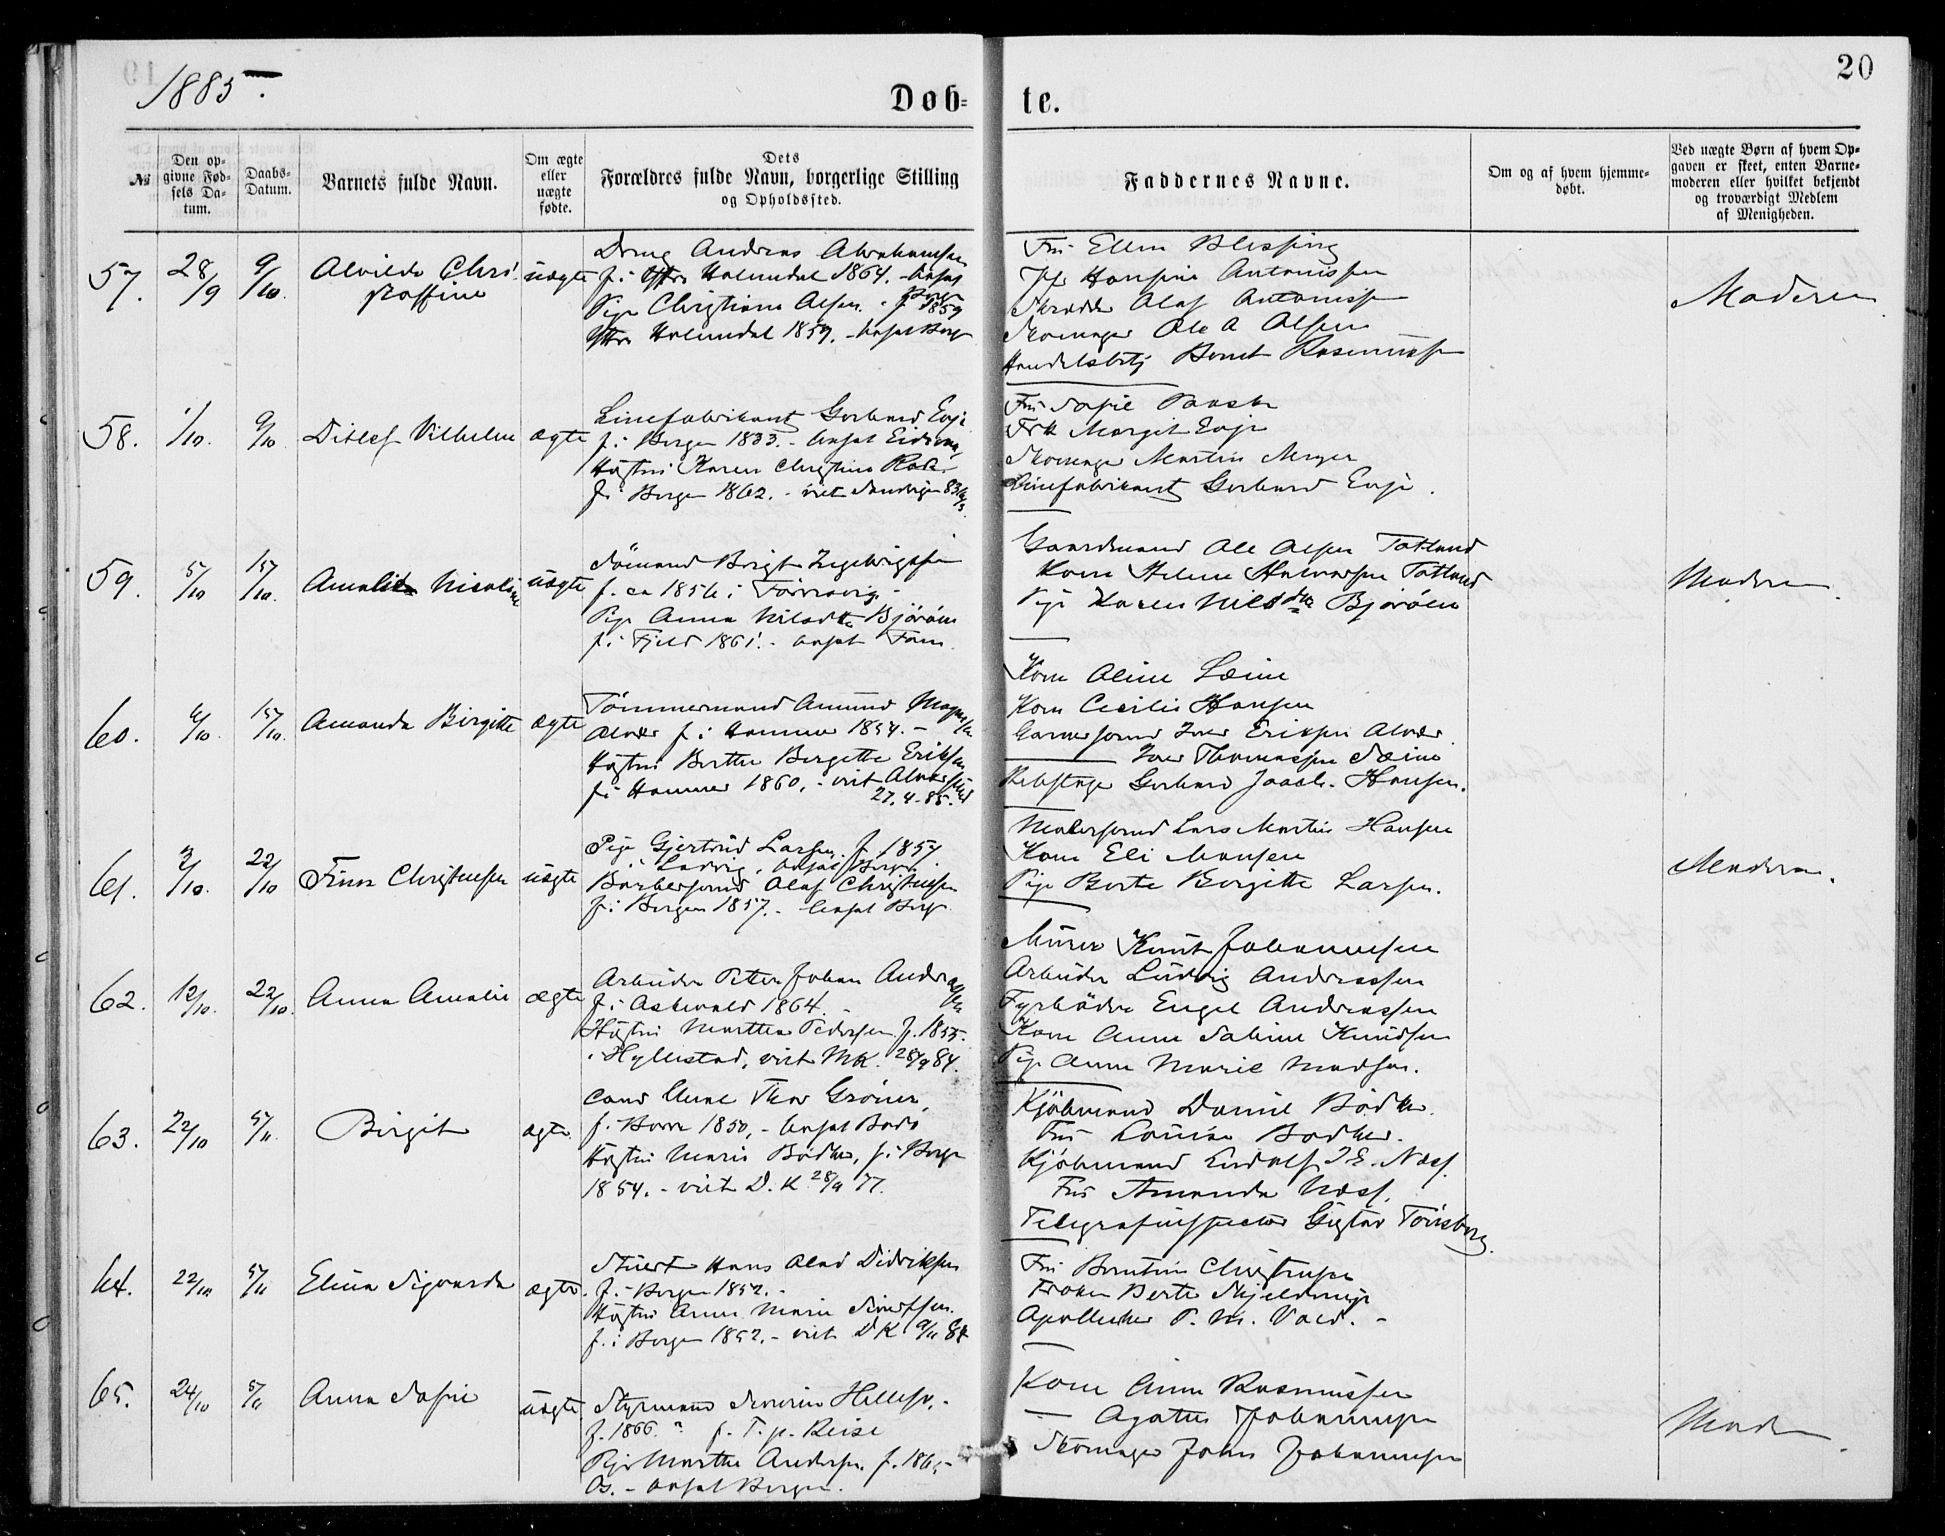 1885.
Døb=
te.
20
№
Den op-
givne Fød-
sels Da-
tum.
Daabs-
Datum.
Barnets fulde Navn.
Om ægte
eller
uægte
fødte.
Dets
Forældres fulde Navn, borgerlige Stilling
og Opholdssted.
Faddernes Navne.
Om og af hvem hjemme-
døbt.
Ved uægte Børn af hvem Op-
gaven er skeet, enten Barne-
moderen eller hvilket bekjendt
og troværdigt Medlem
af Menigheden.
57.
28/9
9/10.
Alvilde Chri-
stoffine
uægte
Dreng Andreas Abrahamsen
f. i Holmedal 1864. - bosat
Bergen
Pige Christiane Olsen. f 1859
Holmedal 1859. - bosat Berg
Fru Ellen Blessing
Hansine Antonissen
Skrædder Olaf Antonissen
Skomager Ole A Olsen
Handelsbetj Bernt Rasmussen
Moderen
58.
1/10.
9/10
Ditlef Vilhelm
ægte
Linefabrikant Gerhard Evje
f. i Bergen 1833. - bosat
Hustru Karen Christine
f. i Bergen 1862. - viet Sandvigen 83
Fru Sofie
Frk Margit Evje
Skomager Martin Meyer
Linefabrikant Gerhard Evje.
59.
5/10
15/10.
Amalie Nicoline
uægte
Sömand Brigt Ingebrigtsen
f. ca 1856 i
Pige Anna Nilsdtr Björöen
f. i Fjeld 1861. - bosat
Gaardmand Ole Olsen Totland
Kone Helene Halvorsen Totland
Pige Karen Nilsdtr Björöen
Moderen.
60.
6/10.
15/10.
Amanda Birgitte
ægte
Tömmermand Amund Magnussen
Alver f. i Hammer 1854. -
Hustru Berthe Bergette Eriksen
f. i Hammer 1860. - viet Alversund
27.4-85.
Kone Oline Sæim
Kone Cecilie Hansen
Garversvend Iver Eriksen Alver
Iver Thomassen Sæim
Rebslager Gerhard Jacob. Hansen.
61.
3/10.
22/10
Finn Christensen
uægte
Pige Gjertrud Larsen f. 1857
i Ladvig, bosat Bergen
Barbersvend Olaf Christensen
f. i Bergen 1857. - bosat Berg
Malersvend Lars Martin Hansen
Kone Eli Monsen
Pige Berte Bergitte Larsen.
Moderen.
62.
12/10.
22/10.
Anna Amalie
ægte
Arbeider Peter Johan Andreassen
f. i Askevold 1864. -
Hustru Marthe Pedersen f. 1855.
i Hyllestad, viet MK. 28/9 84.
Murer Knut Johannesen
Arbeider Ludvig Andreassen
Fyrböder Engel Andreassen
Kone Anne Sabine Knudsen
Pige Anna Marie Madsen.
63.
22/10
5/11.
Birgit
ægte.
Cand Thor Gröner,
f. Borre 1850, - bosat Bodö
Hustru Marie Bödker, f. i Berge
1854. - viet D. K 28/9 77.
Kjöbmand Daniel Bödker.
Fru Louise Bödker.
Kjöbmand Endolf J E. Næss.
Fru Amanda Næss.
Telegrafinspectør Gustav Tönsberg.
64.
22/10
5/11
Elina Sigvarda
ægte.
Stuert Hans Olad Didriksen
f. i Bergen 1852. -
Hustru Anne Marie Sivertsen.
f. i Bergen 1852. - viet DK 9/11 84
Fru Berntine Christensen
Fröken Berte Skjelderup
Apotheker P. M. Vold. -
65.
24/10
5/11
Anna Sofie
uægte
Styrmand Severin Hillesø. -
f. 1866. ? f. T. p. Reise
Pige Marthe Andersen. f. 186
Os. - bosat Bergen.
Kone Anne Rasmussen
- Agathe Johannessen
Skomager Johan Johannessen
Moderen.